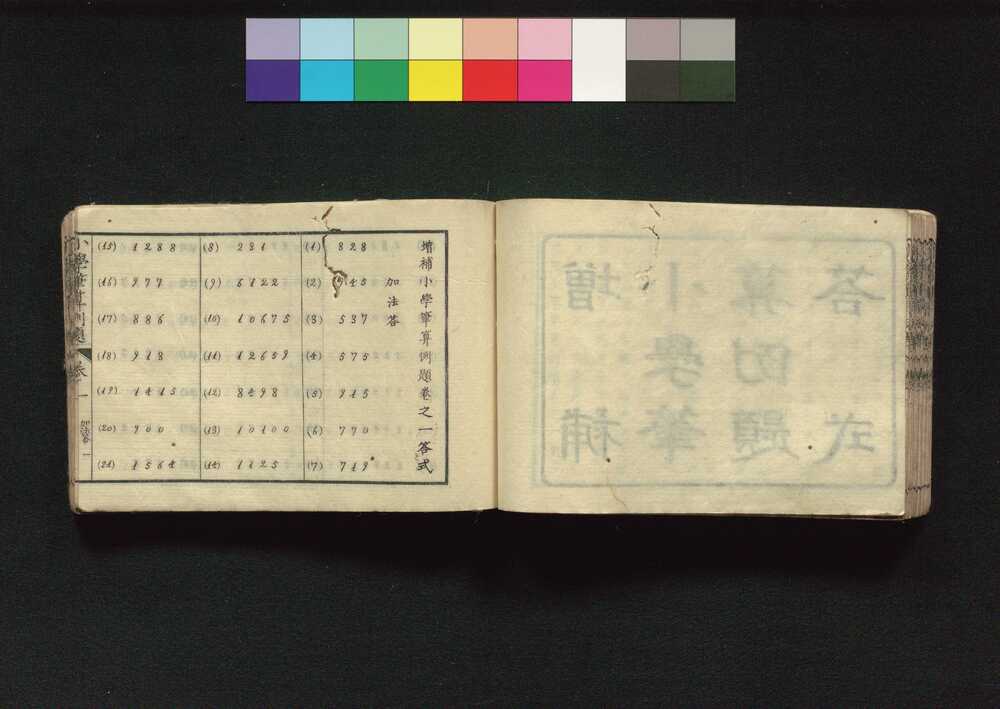 增補
小學筆
算例題
答式
增補小學筆算例題卷之一答式
加法答
(1) 828
(2) 45
(3) 537
(4) 575
(5) 915
(6) 770
(7) 719
(8) 281
(9) 6122
(10) 10675
(11) 12659
(12) 8498
(13) 10100
(14) 1125
(15) 1288
(16) 977
(17) 886
(18) 913
(19) 1415
(20) 900
(21) 1564
小學筆算例題 卷一 加法答 一